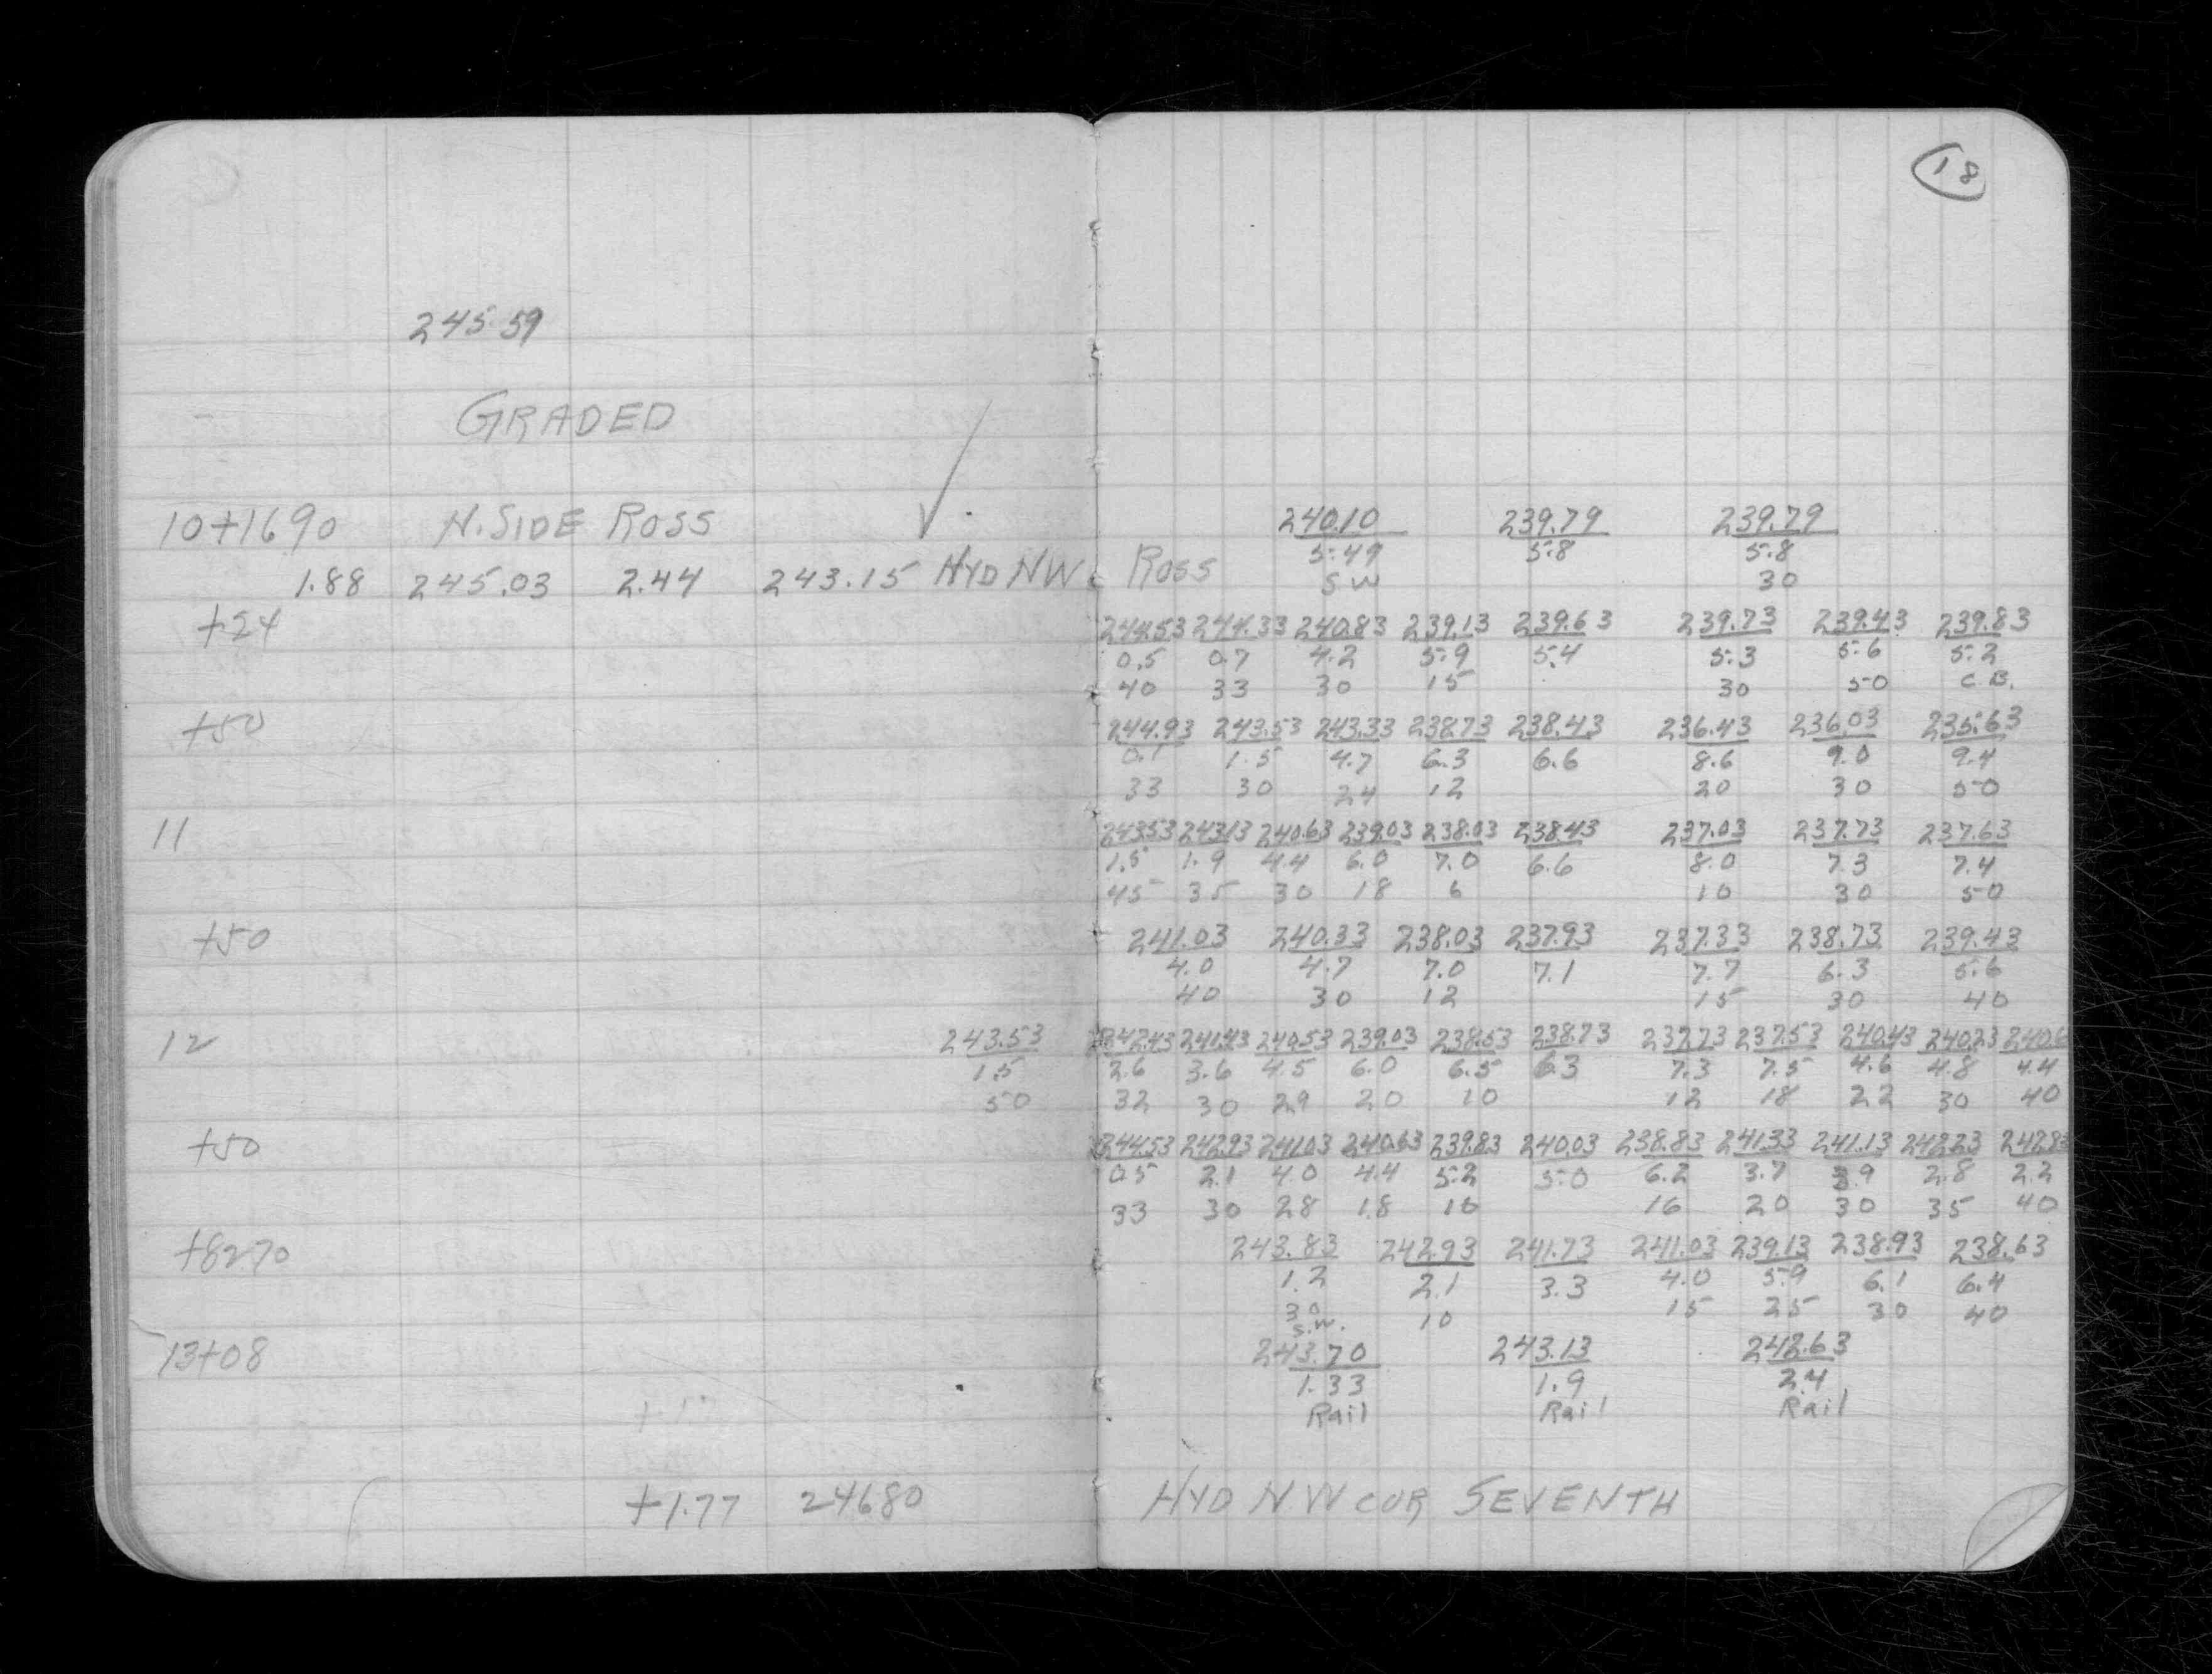 18
245.59
GRADED
10+1690 N. SIDE ROSS ✓ 240.10 239.79 239.79
5.49 5.8 5.8
1.88 245.03 2.44 243.15 HYD NW ROSS SW 30
+24 244.53 244.33 240.83 239.13 239.63 239.73 239.43 239.83
0.5 0.7 4.2 5.9 5.4 5.3 5.6 5.2
40 33 30 15 30 50 C.B.
+50 244.93 243.53 243.33 238.73 238.43 236.43 236.03 235.63
0.1 1.5 4.7 6.3 6.6 8.6 9.0 9.4
33 30 24 12 20 30 50
11 243.53 243.13 240.63 239.03 238.03 238.43 237.03 237.73 237.63
1.5 1.9 4.4 6.0 7.0 6.6 8.0 7.3 7.4
45 35 30 18 6 10 30 50
+50 241.03 240.33 238.03 237.93 237.33 238.73 239.43
4.0 4.7 7.0 7.1 7.7 6.3 5.6
40 30 12 15 30 40
12 243.53 242.43 241.43 240.53 239.03 238.53 238.73 237.73 237.53 240.43 240.23 240.6
1.5 2.6 3.6 4.5 6.0 6.5 6.3 7.3 7.5 4.6 4.8 4.4
50 32 30 29 20 10 12 18 22 30 40
+50 244.53 242.93 241.03 240.63 239.83 240.03 238.83 241.33 241.13 242.23 242.83
0.5 2.1 4.0 4.4 5.2 5.0 6.2 3.7 3.9 2.8 2.2
33 30 28 18 10 16 20 30 35 40
+8270 243.83 242.93 241.73 241.03 239.13 238.93 238.63
1.2 2.1 3.3 4.0 5.9 6.1 6.4
30 10 15 25 30 40
S.W.
13+08 243.70 243.13 242.63
1.33 1.9 2.4
Rail Rail Rail
+1.77 24680 HYD N.W COR SEVENTH